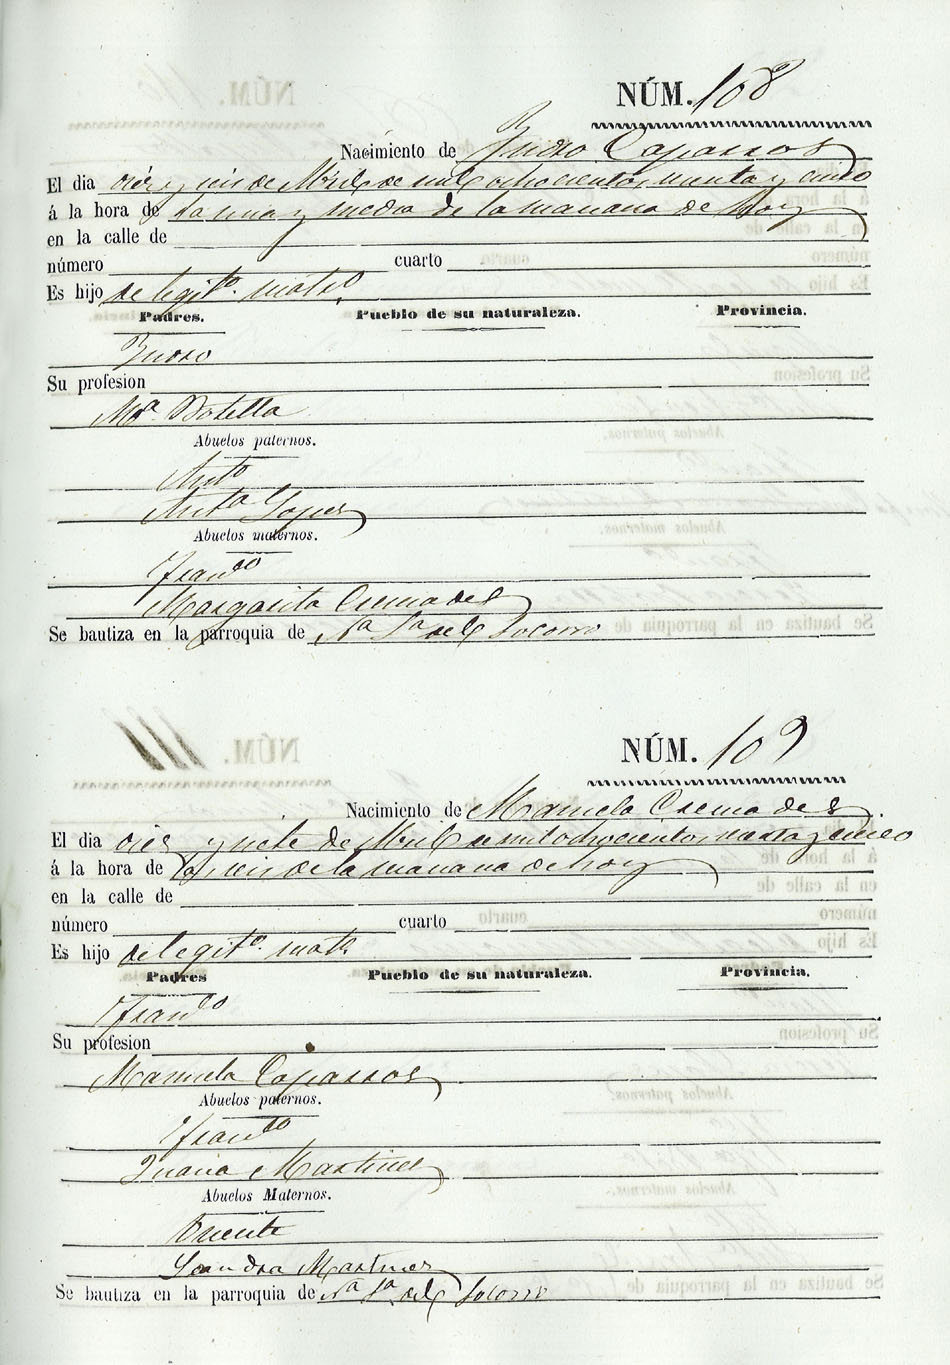 NÚM. 108
Nacimiento de Ysidro Caparros
El dia diez y seis de Abril de mil ochocientos sesenta y cinco
á la hora de la una y media de la mañana de hoy
en la calle de
número cuarto
Es hijo de legitº. matº.
Padres. Pueblo de su naturaleza. Provincia.
Su profesion
Mª. Botella
Abuelos paternos.
Antº
Antª Lopez
Abuelos maternos.
Francº
Margarita Cremades
Se bautiza en la parroquia de Nª Sª del Socorro
NÚM. 109
Nacimiento de Manuela Cremades
El dia diez y siete de Abril de mil ochocientos sesenta y cinco
á la hora de las seis de la mañana de hoy
en la calle de
número cuarto
Es hijo de legitº. matº.
Padres Pueblo de su naturaleza. Provincia.
Francº
Su profesion
Manuela Caparros
Abuelos paternos.
Francº
Juana Martinez
Abuelos Maternos.
Vicente
Leandra Martinez
Se bautiza en la parroquia de Nª Sª del Socorro